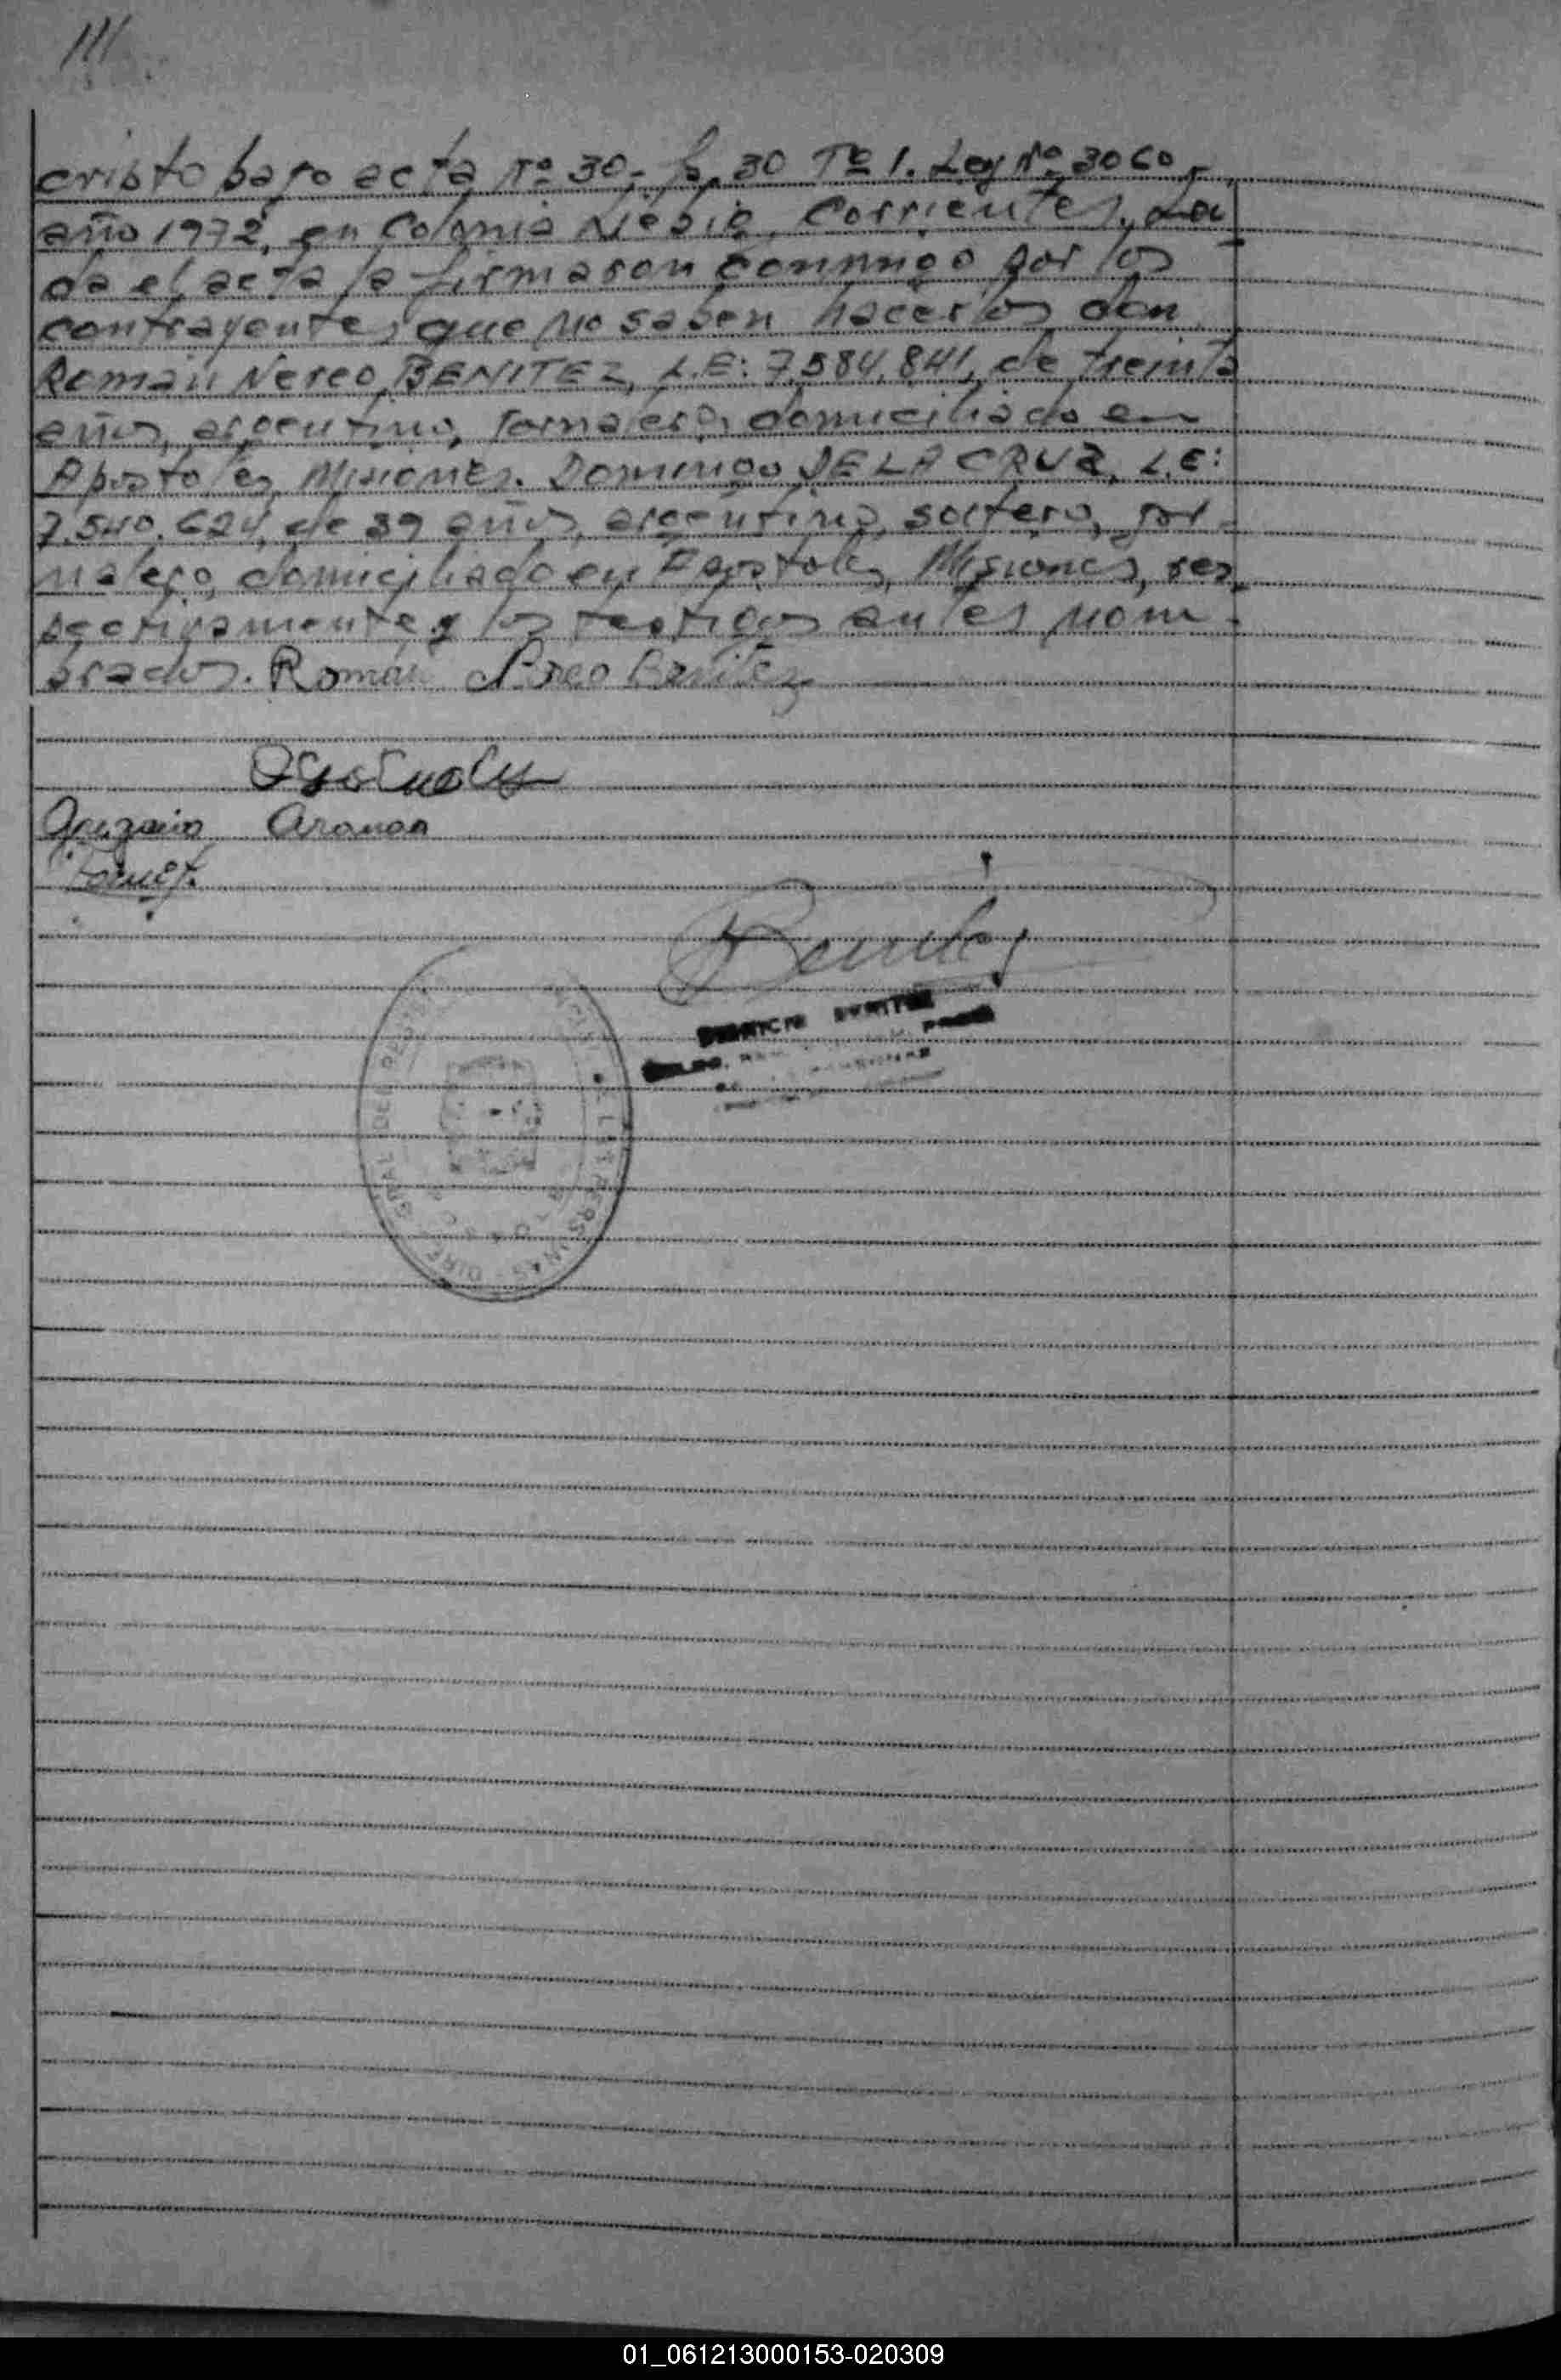 111
cristo bajo acta Nº 30, fº 30 Tº 1. Ley Nº 3060,
año 1972, en Colonia Liebig, Corrientes. Leí
da el acta la firmaron conmigo por los
contrayentes que no saben hacerlos don
Román Nereo BENITEZ, L.E: 7.584.841, de treinta
años, argentino, jornalero, domiciliado en
Apostoles, Misiones. Domingo DE LA CRUZ, L.E:
7.540.624, de 39 años, argentino, soltero, jor-
nalero, domiciliado en Apostoles, Misiones, res-
pectivamente y los testigos antes nom-
brados. Román Nereo Benitez
BENITEZ
01_061213000153-020309